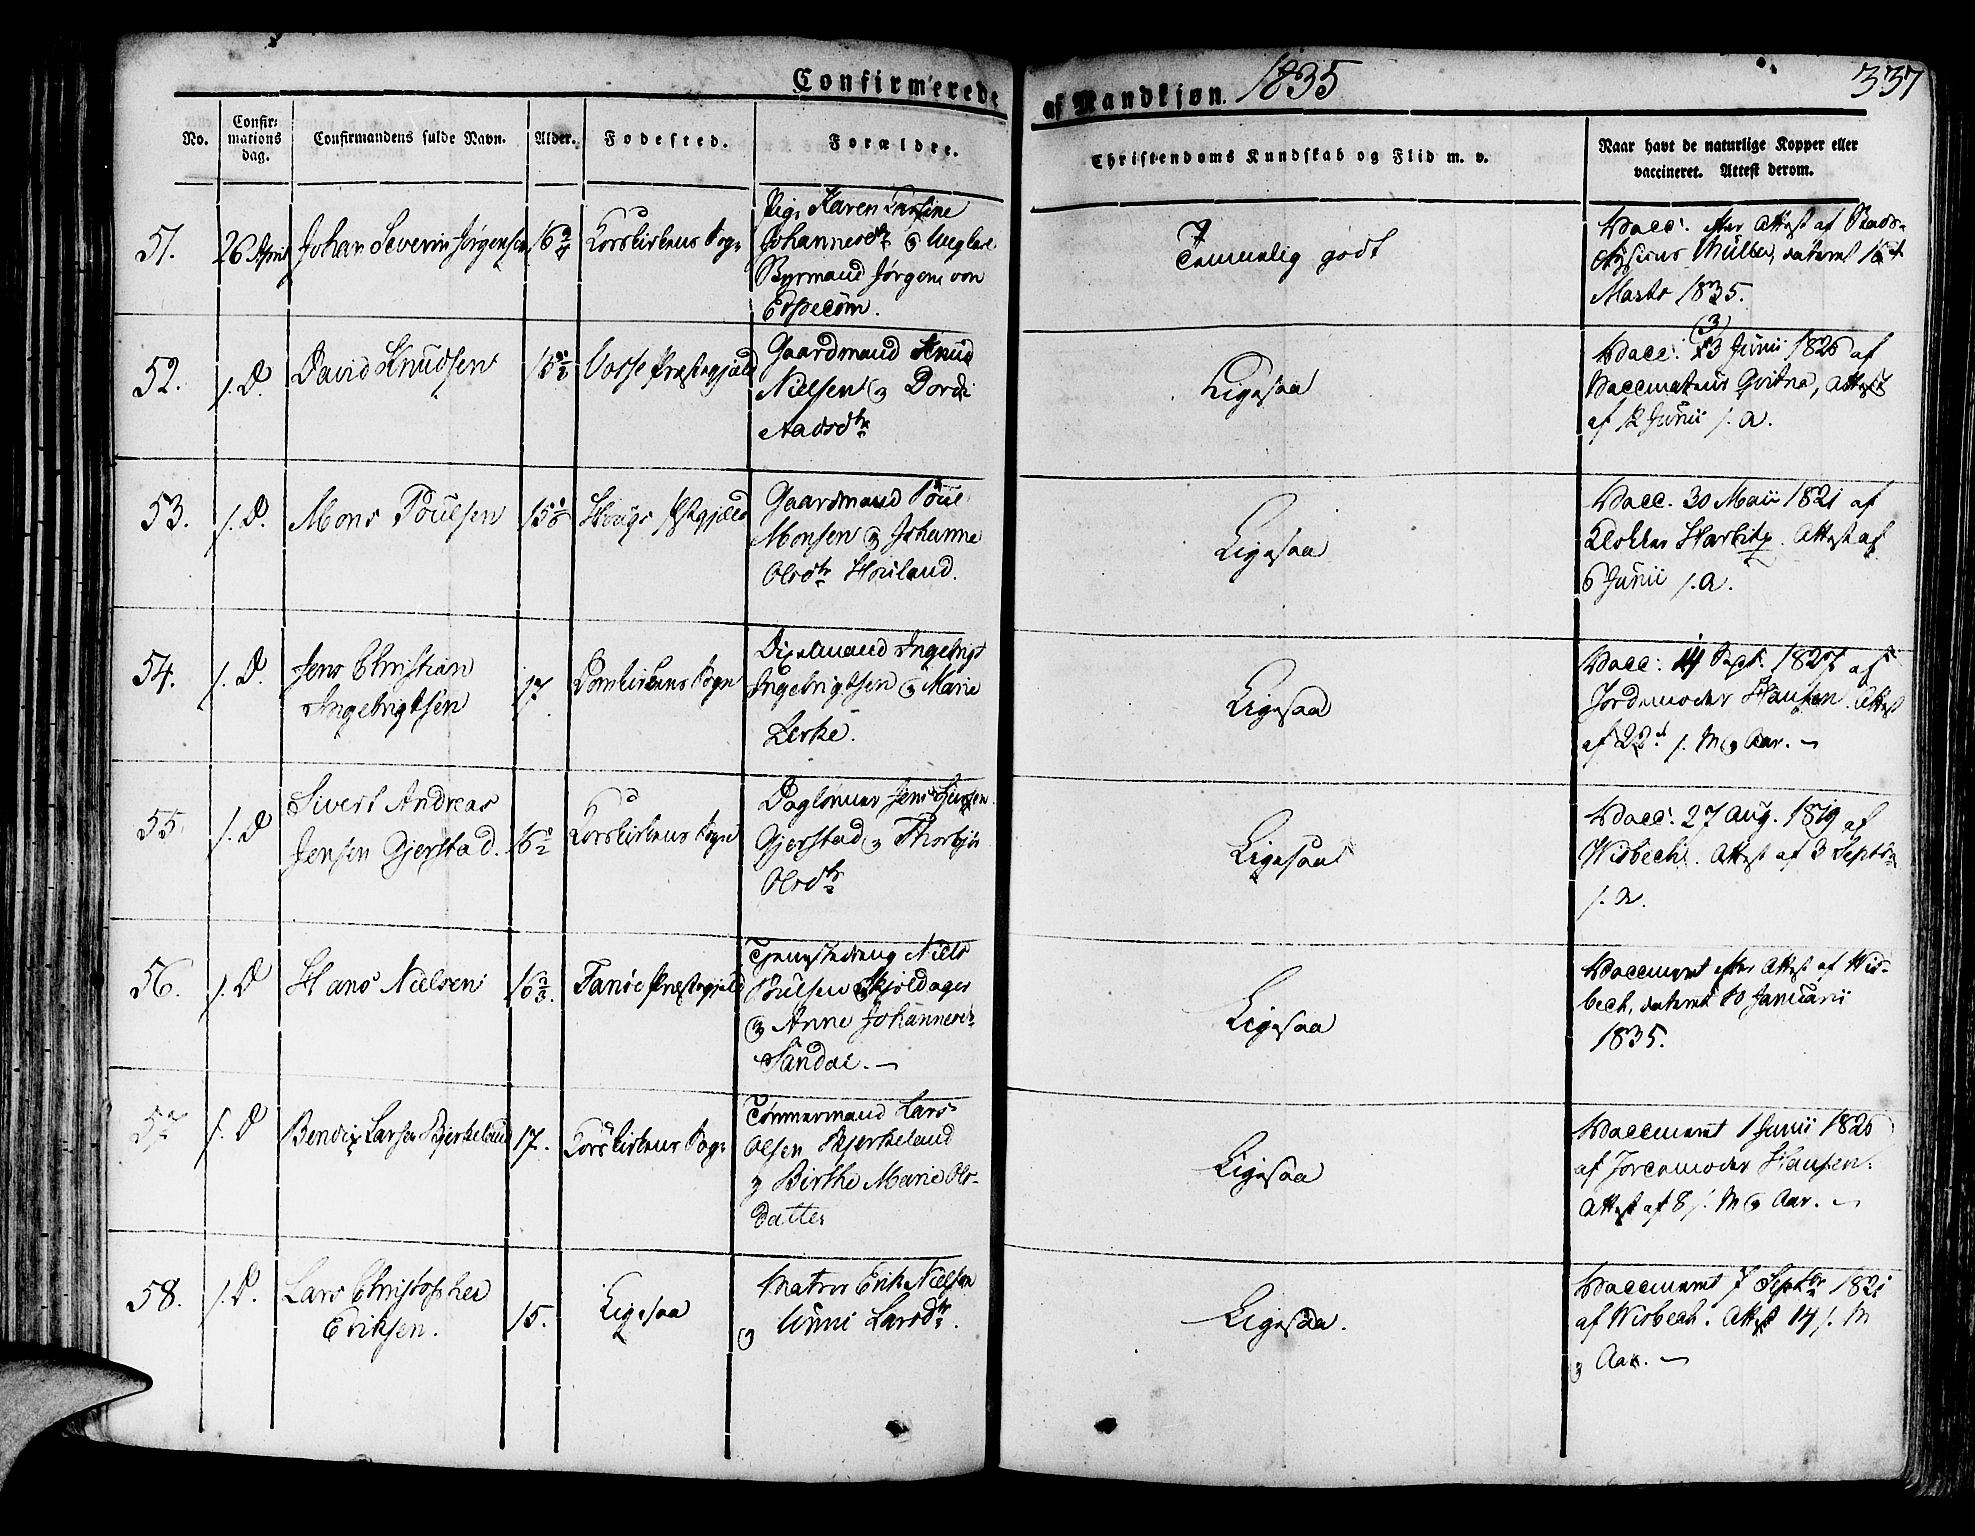 Confirmerede af Mandkjøn. 1835 337
No. Confirmations dag. Confirmandens fulde Navn. Alder. Fødested. Forældre. Christendoms Kundskab og Flid m. v. Naar havt de naturlige Kopper eller vaccineret. Attest derom.
51. 26 April Johan Severin Jørgensen 16 Korskirkens Sogn
Pige Karen
Johannesdtr og Ungkarl
Byrmand Jørgen von
Temmelig godt
Vacc: efter Attest af Stads-
Physicus Müller, dateret 16de
Marts 1835.
52. s. D. David Knudsen 15 1/2 Vosse Præstegjæld
Gaardmand Knud
Nielsen og Dordi
Aadsdtr
Ligesaa
Vacc: 13 Junii 1826 af
Vaccinateur Qvitne, Attest
af 12 Junii s. A.
53. s. D. Mons Poulsen 15 Hougs Præstegjæld
Gaardmand Poul
Monsen og Johanne
Olsdtr Houland.
Ligesaa
Vacc. 30 Maii 1821 af
Klokker Harbitz. Attest af
6 Junii s. A.
54. s. D. Jens Christian
Ingebrigtsen 17 Domkirkens Sogn
Ingebrigt
Ingebrigtsen og Marie
Lerke.
Ligesaa
Vacc: 14 Sept. 1827 af
Jordemoder Hansen. Attest
af 22d s. M og Aar.
55. s. D Sivert Andreas
Jensen Gjerstad. 16 1/2 Korskirkens Sogn
Daglønner Jens Jensen
Gjerstad og Thorbjør
Olsdtr
Ligesaa
Vacc: 27 Aug. 1819 af
Wisbech. Attest af 3 Septbr
s. A.
56. s. D Hans Nielsen 16 2/3. Fanøe Præstegjæld
Tjenestedreng Niels
Poulsen Skjoldager
og Anne Johannesdr
Sandal.
Ligesaa
Vaccineret efter Attest af Wis-
bech, dateret 10 Januarii
1835.
57 s. D Bendix Larsen Bjerkeland 17. Korskirkens Sogn
Tømmermand Lars
Olsen Bjerkeland
og Birthe Marie Ols-
datter
Ligesaa
Vaccineret 1 Junii 1826
af Jordemoder Hansen.
Attest af 8 s. M og Aar.
58. s. D. Lars Christopher
Eriksen. 15. Ligesaa
Matros Erik Nielsen
og Unni Larsdtr.
Ligesaa.
Vaccineret 7 Septbr 1821
af Wisbech. Attest 14 s. M
og Aar.